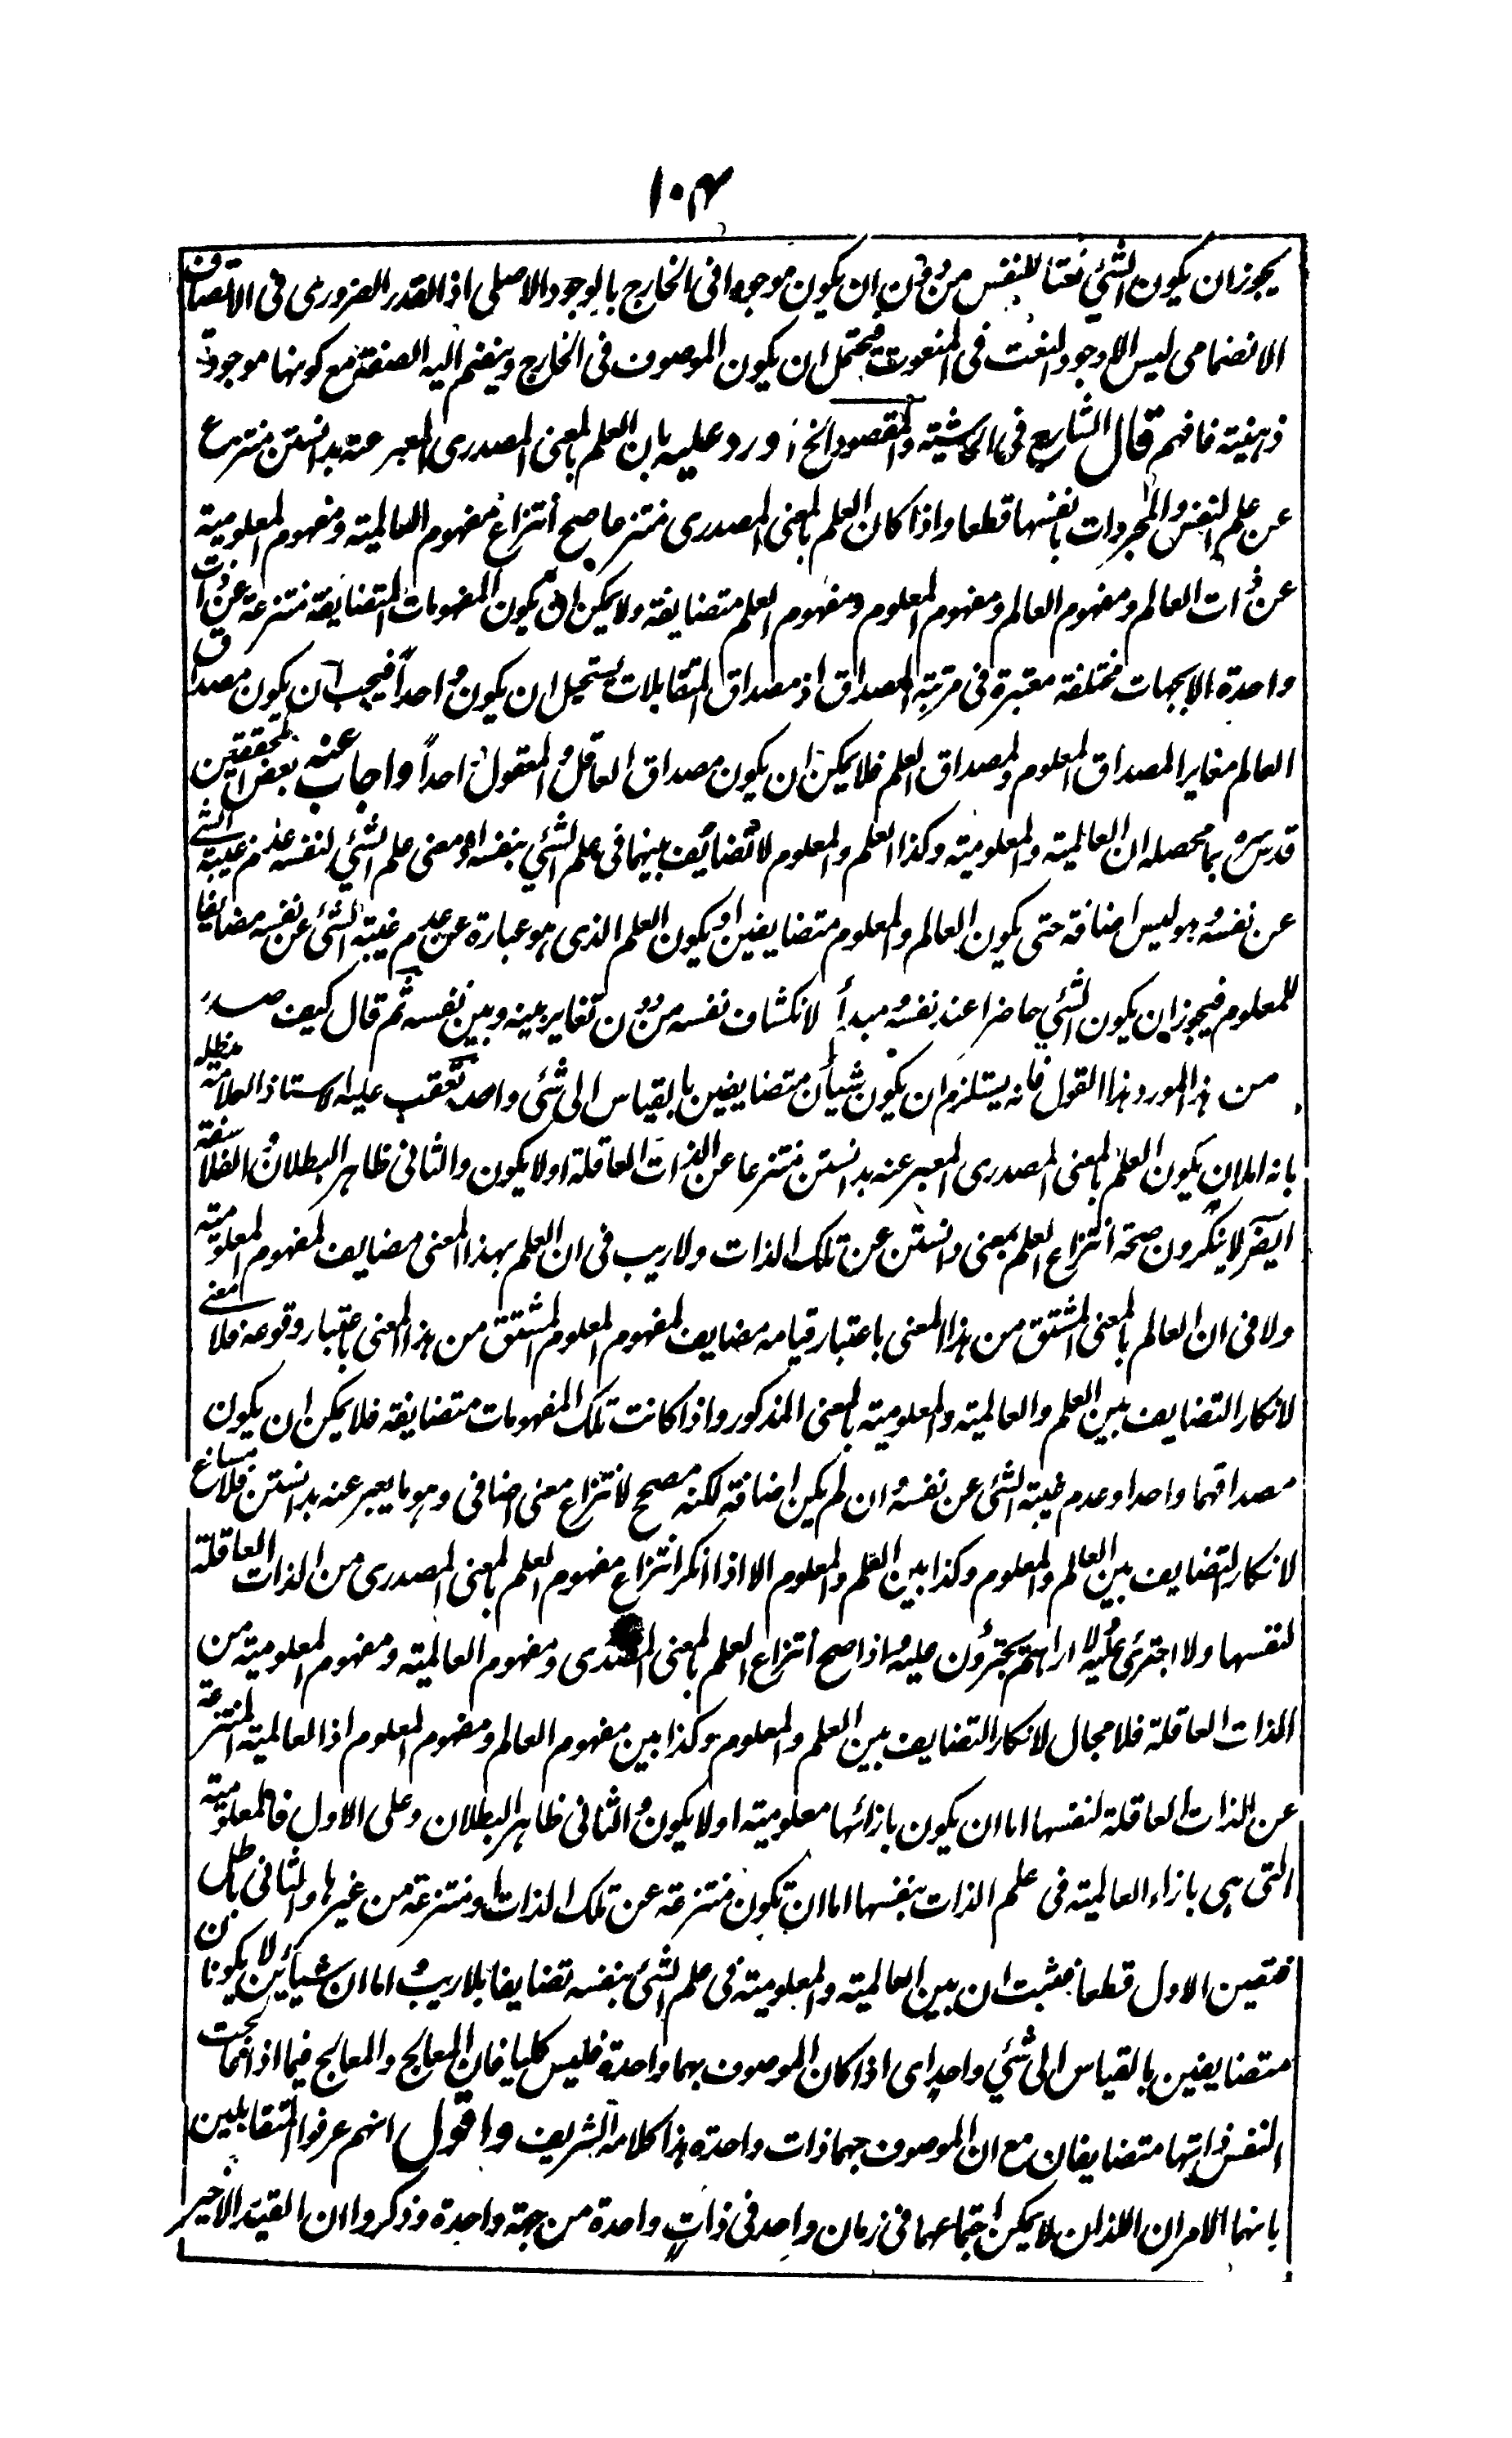 ١٠٤
يجوز ان يكون الشئ نعتا للنفس من دون ان يكون موجودا فى الخارج بالوجود الاصلى اذ القدر الضرورى فى الاتصاف
الانضمامى ليس الا وجود النعت فى المنعوت فيحتمل ان يكون الموصوف فى الخارج وينضم اليه الصفة مع كونها موجودة
ذهنية فافهم قال الشارح فى الحاشية والمقصود الخ اورد عليه بان العلم بالمعنى المصدرى المعبر عنه بدانستن منتزع
عن علم النفس والمجردات بانفسها قطعا واذا كان العلم بالمعنى المصدرى منتزعا صح انتزاع مفهوم العالمية ومفهوم المعلومية
عن ذات العالم ومفهوم العالم ومفهوم المعلوم ومفهوم العلم متضايفة ولا يمكن ان يكون المفهومات المتضايفة منتزعة عن ذات
واحدة الا بجهات مختلفة معتبرة فى مرتبة المصداق اذ مصداق المتقابلات يستحيل ان يكون واحداً فيجب ان يكون مصداق
العالم مغايرا لمصداق المعلوم ولمصداق العلم فلا يمكن ان يكون مصداق العاقل والمعقول واحداً واجاب عنه بعض المحققين
قدس سره بما محصله ان العالمية والمعلومية وكذا العلم والمعلوم لا تضايف بينهما فى علم الشئ بنفسه اذ معنى علم الشئ لنفسه عدم غيبة الشئ
عن نفسه وهو ليس اضافة حتى يكون العالم والمعلوم متضايفين او يكون العلم الذى هو عبارة عن عدم غيبة الشئ عن نفسه مضايفا
للمعلوم فيجوز ان يكون الشئ حاضرا عند نفسه ومبدأ لانكشاف نفسه من دون تغاير بينه وبين نفسه ثم قال كيف صدر
من هذا المورد هذا القول فانه يستلزم ان يكون شيأن متضايفين بالقياس الى شئ واحد تعقب عليه الاستاذ العلامة مدظله
بانه اما ان يكون العلم بالمعنى المصدرى المعبر عنه بدانستن منتزعا عن الذات العاقلة او لا يكون والثانى ظاهر البطلان والفلاسفة
ايضر لا ينكرون صحة انتزاع العلم بمعنى دانستن عن تلك الذات ولا ريب فى ان العلم بهذا المعنى مضايف لمفهوم المعلومية
ولا فى ان العالم بالمعنى المشتق من هذا المعنى باعتبار قيامه مضايف لمفهوم المعلوم المشتق من هذا المعنى باعتبار وقوعه فلا معنى
لانكار التضايف بين العلم والعالمية والمعلومية بالمعنى المذكور واذا كانت تلك المفهومات متضايفة فلا يمكن ان يكون
مصداقهما واحدا وعدم غيبة الشئ عن نفسه وان لم يكن اضافة لكنه مصحح لانتزاع معنى اضافى وهو ما يعبر عنه بدانستن فلا مساغ
لانكار التضايف بين العالم والمعلوم وكذا بين العلم والمعلوم الا اذا انكر انتزاع مفهوم العلم بالمعنى المصدرى من الذات العاقلة
لنفسها ولا اجترئ عليه ولا اراهم يجترؤن عليه واذا صح انتزاع العلم بالمعنى المصدرى ومفهوم العالمية ومفهوم المعلومية من
الذات العاقلة فلا مجال لانكار التضايف بين العلم والمعلوم وكذا بين مفهوم العالم ومفهوم المعلوم اذ العالمية المنتزعة
عن الذات العاقلة لنفسها اما ان يكون بازائها معلومية او لا يكون والثانى ظاهر البطلان وعلى الاول فالمعلومية
التى هى بازاء العالمية فى علم الذات بنفسها اما ان تكون منتزعة عن تلك الذات او منتزعة من غيرها والثانى باطل
فتعين الاول قطعا فثبت ان بين العالمية والمعلومية فى علم الشئ بنفسه تضايفا بلا ريب واما ان شيأين لا يكونان
متضايفين بالقياس الى شئ واحد اى اذا كان الموصوف بهما واحدة فليس كليا فان المعالج والمعالج فيما اذا عالجت
النفس ذاتها متضايفان مع ان الموصوف بهما ذات واحدة هذا كلامه الشريف واقول انهم عرفوا المتقابلين
بانهما الامران اللذان لا يمكن اجتماعهما فى زمان واحد فى ذات واحدة من جهة واحدة وذكروا ان القيد الاخير